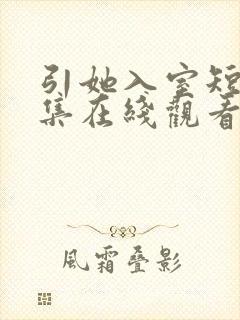 引她入室短
集在綫觀看
風霜叠影